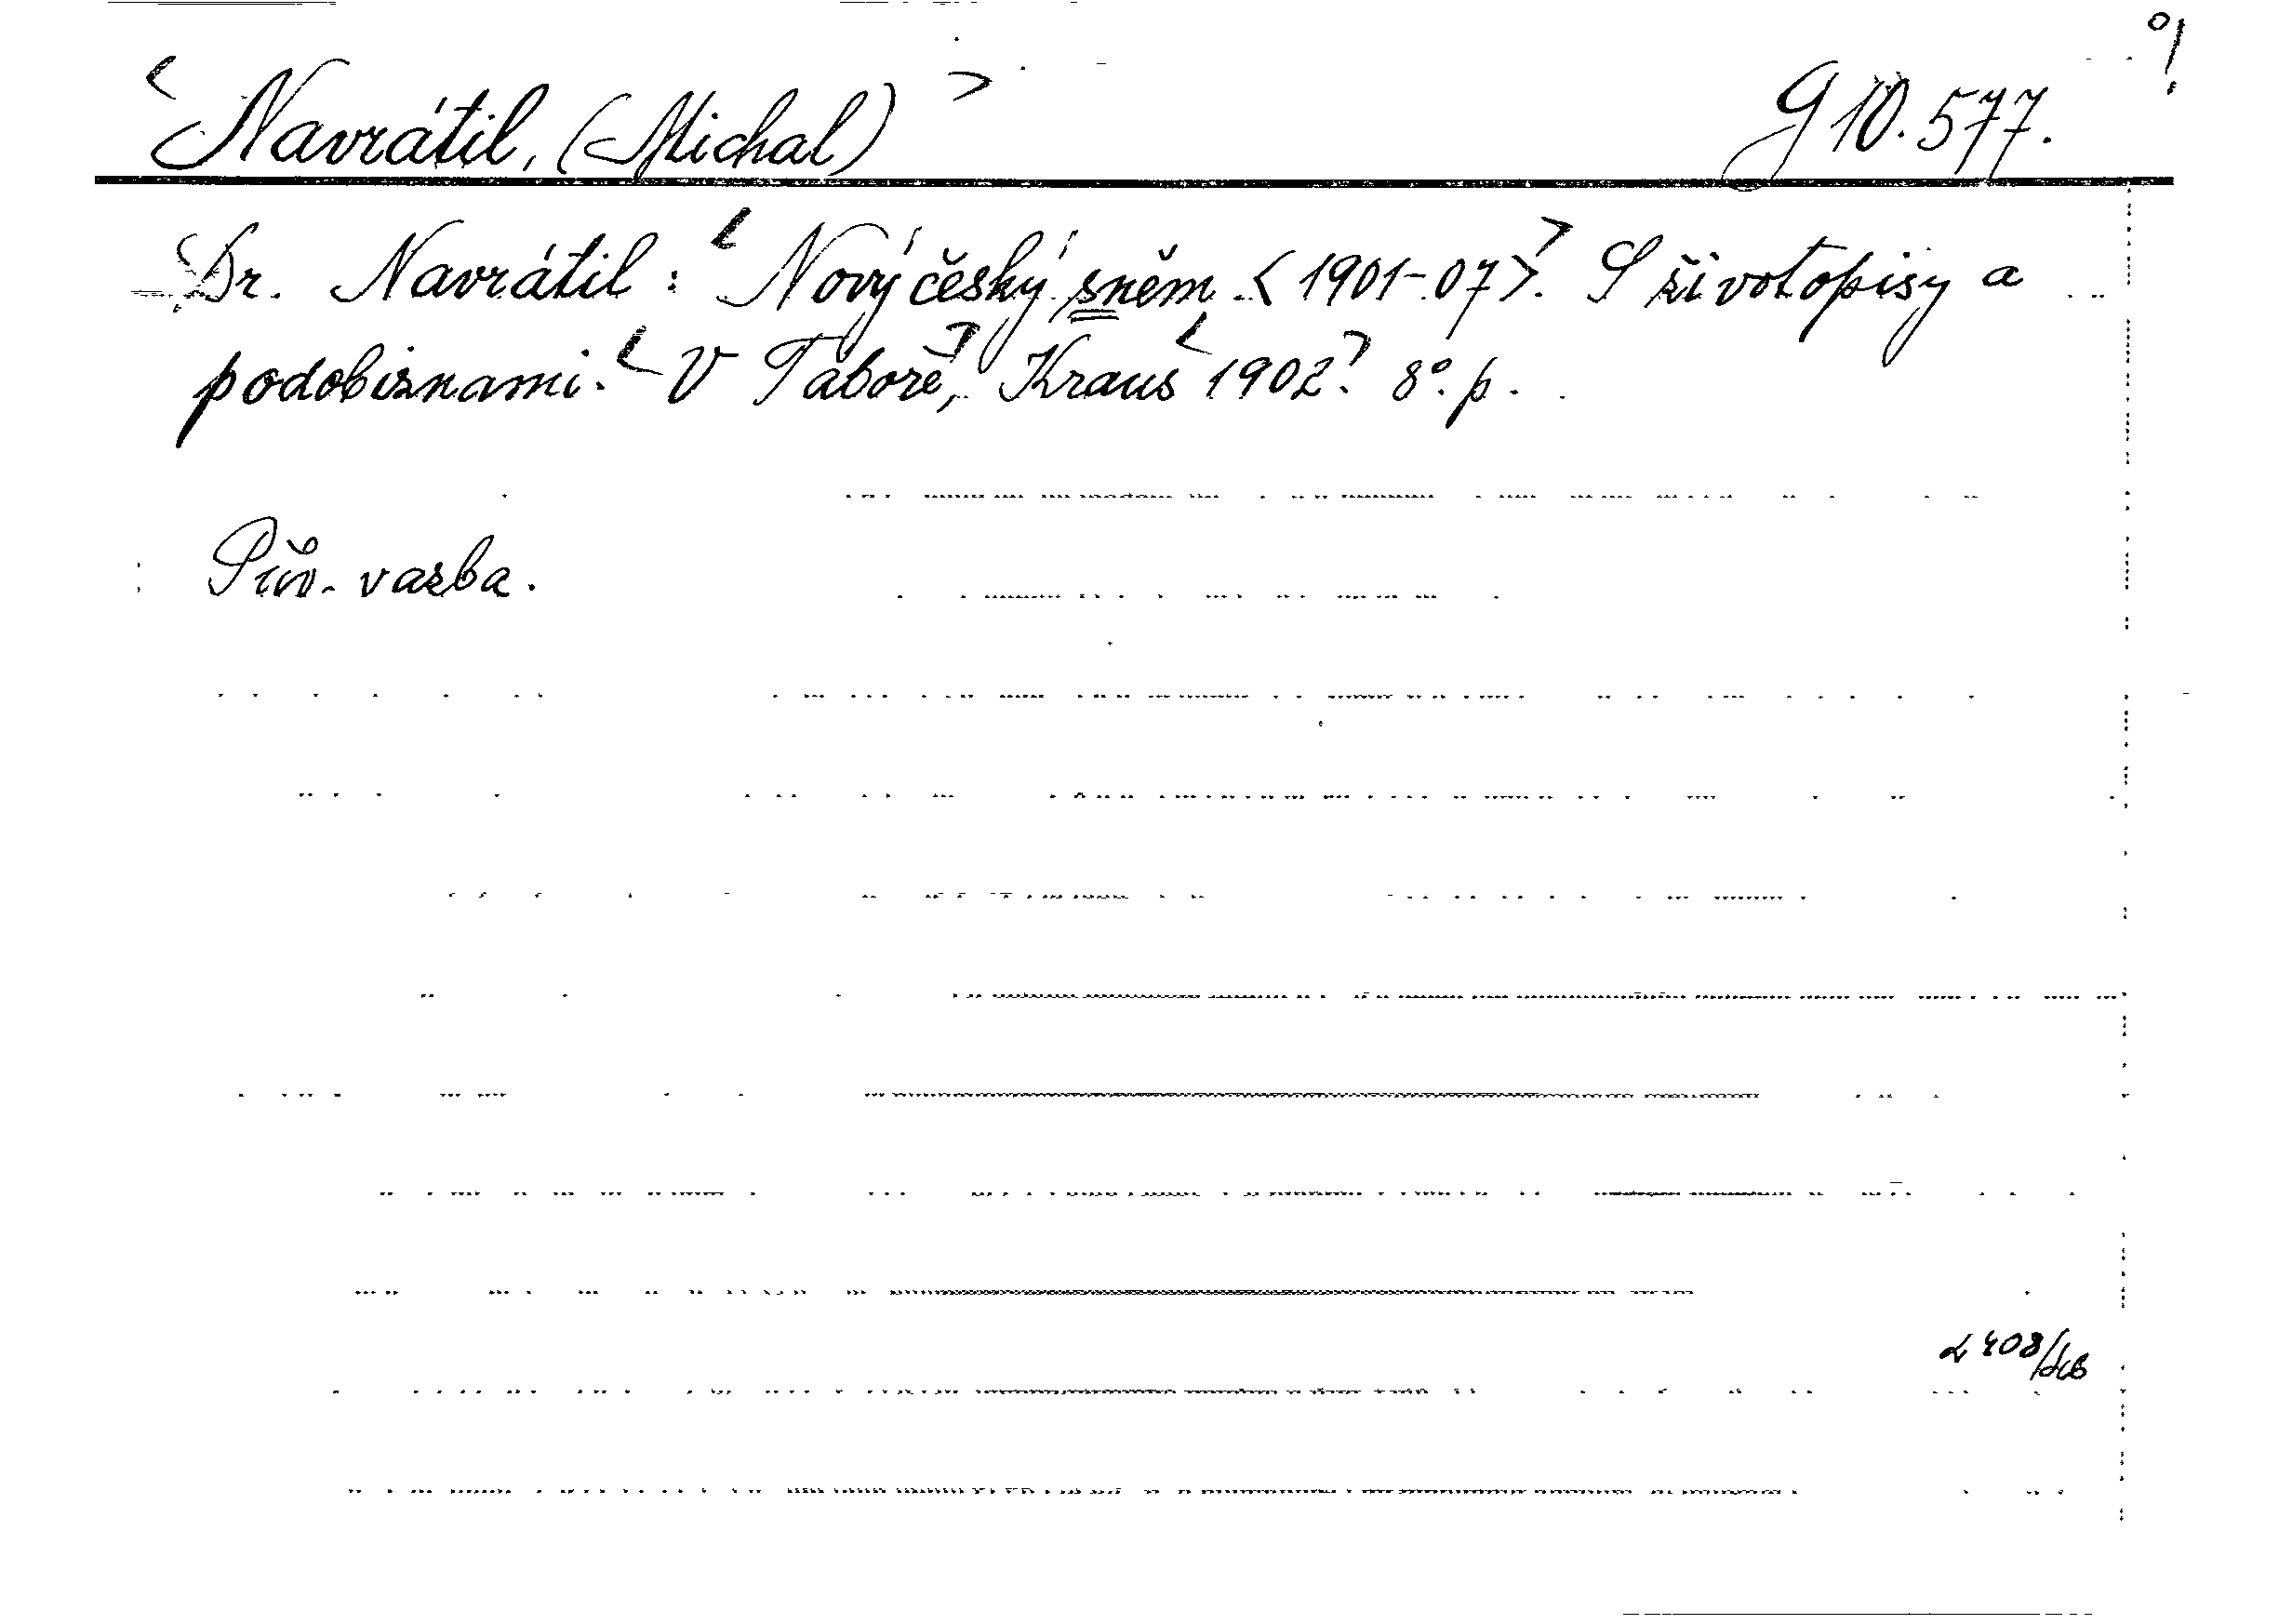 <Navrátil, (Michal)> G 10.577.
Dr. Navrátil: <Nový český sněm <1901-07>>. S životopisy a
podobiznami. <V Táboře>, Kraus <1902>. 8°. p.
Pův. vazba.